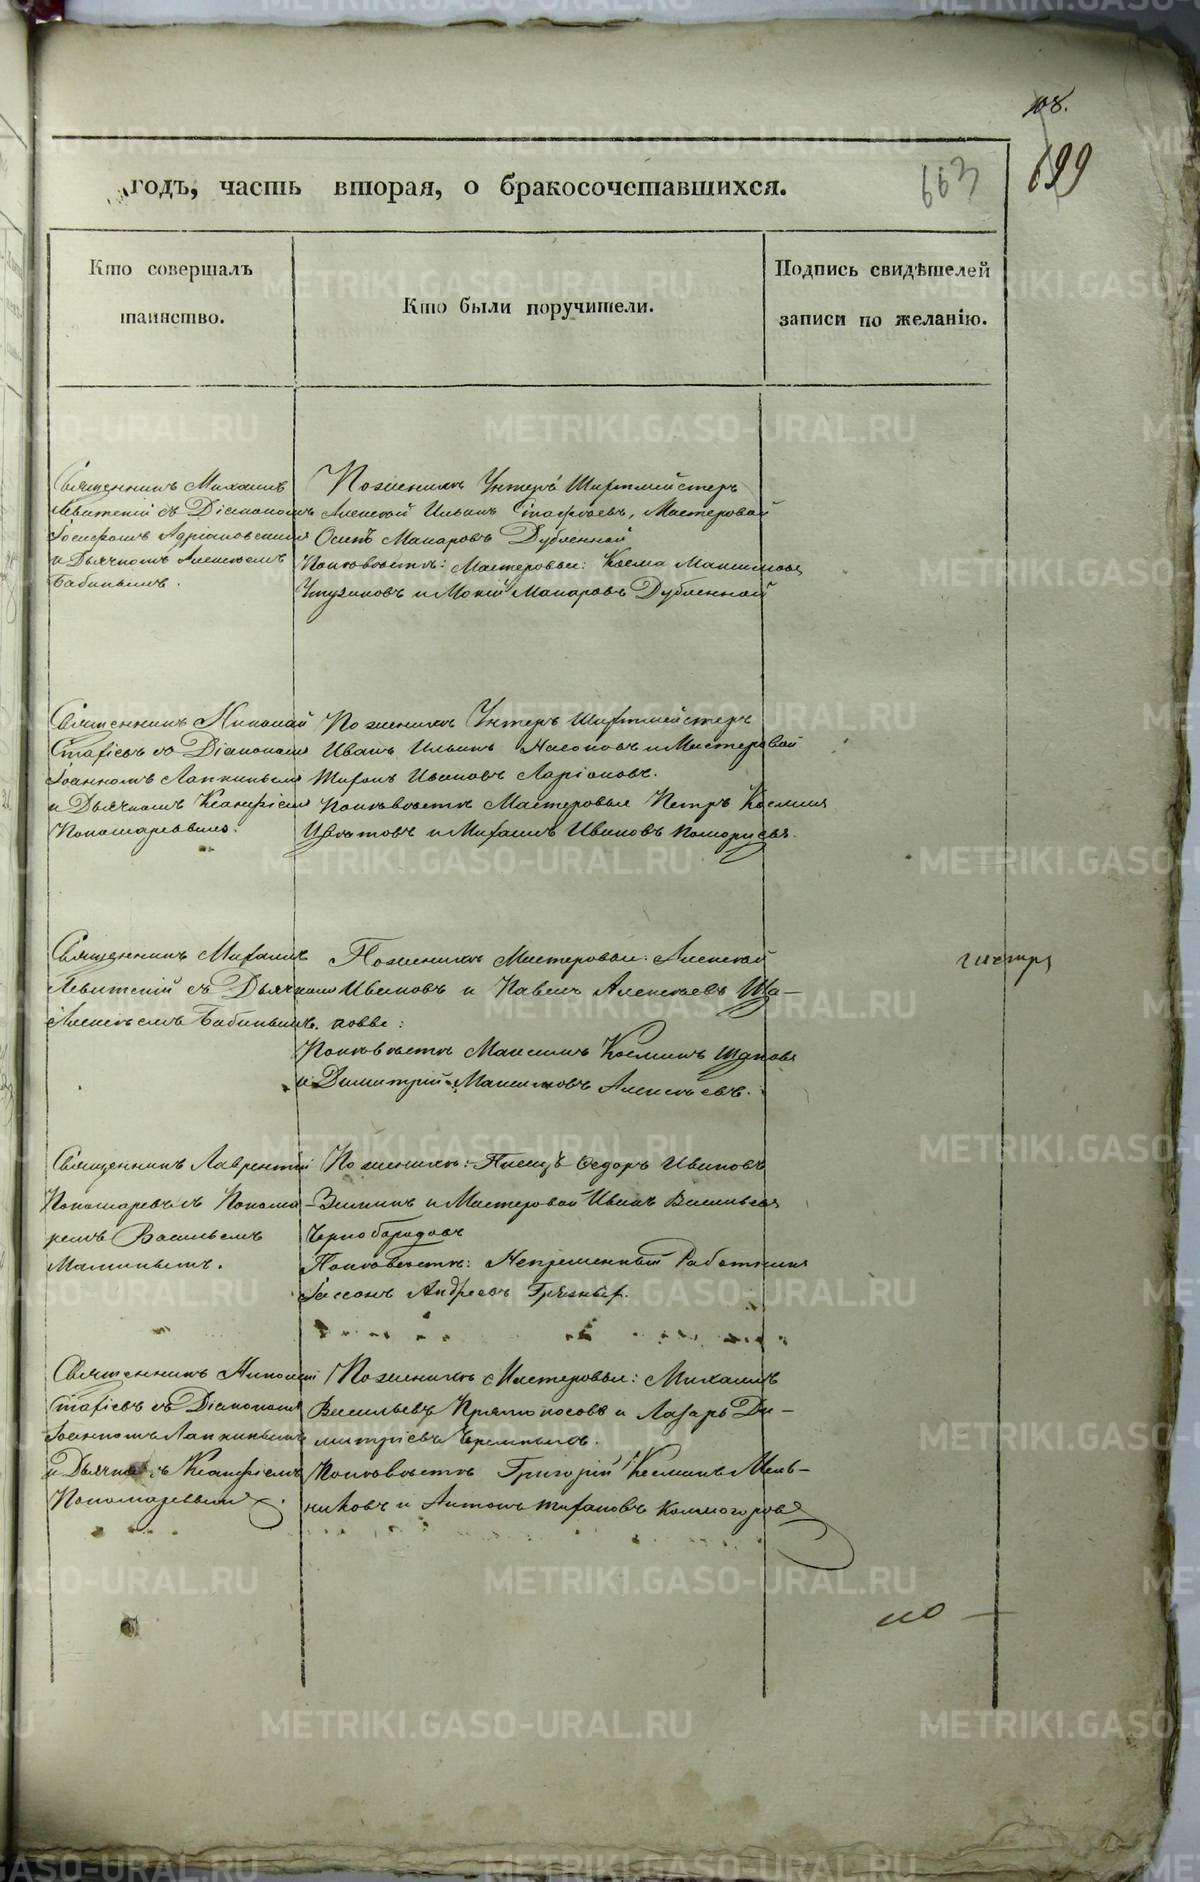 108.
699
663
годъ, часть вторая, о бракосочетавшихся.
Кто совершалъ
таинство.
Кто были поручители.
Подпись свидѣтелей
записи по желанію.
Священникъ Михаилъ
Левитскій съ Діакономъ
Іосифомъ Адріановскимъ
и Дьячкомъ Алексѣемъ
Бабинымъ.
По женихѣ Унтеръ Шихтмейстеръ
Алексѣй Ильинъ Мастеровой
Осипъ Макаровъ Дубленной
По невѣстѣ: Мастеровые: Косма Максимовъ
и Мокій Макаровъ Дубленной
Священникъ Николай
Стафіевъ съ Діакономъ
Іоанномъ Лапкинымъ
и Дьячкомъ Ксанфіемъ
Пономаревымъ.
По женихѣ Унтеръ Шихтмейстеръ
Иванъ Ильинъ Насоновъ и Мастеровой
Тихонъ Ивановъ Ларіоновъ.
По невѣстѣ Мастеровые Петръ Косминъ
и Михаилъ Ивановъ
Священникъ Михаилъ
Левитскій съ Дьячкомъ
Алексѣемъ Бабинымъ.
По женихѣ Мастеровые: Алексѣй
Ивановъ и Павелъ Алексѣевъ Ща-
повы:
По невѣстѣ Максимъ Косминъ Щаповъ
и Димитрій Максимовъ Алексѣевъ.
Священникъ Лаврентій
Пономаревъ съ Понома-
ремъ Васильемъ
Маминымъ.
По женихѣ: Писецъ Ѳедоръ Ивановъ
Зыминъ и Мастеровой Иванъ Васильевъ
Чернобородовъ
По невѣстѣ: Непременный Работникъ
Іассонъ Андреевъ Грязныхъ.
Священникъ Николай
Стафіевъ съ Діакономъ
Іоанномъ Лапкинымъ
и Дьячкомъ Ксанфіемъ
Пономаревымъ.
По женихѣ Мастеровые: Михаилъ
Васильевъ Прямоносовъ и Лазарь Ди-
митріевъ
По невѣстѣ Григорій Косминъ Мель-
никовъ и Антонъ Колмогоровъ
по
METRIKI.GASO-URAL.RU